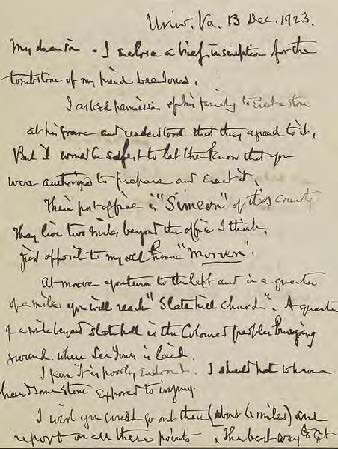 Univ. Va. 13 Dec. 1923.
My dear Sir. I enclose a brief inscription for the
tombstone of my friend
I asked permission of his family to
at his grave and understood that they agreed to it,
But it would be safest to let them know that you
were authorized to prepare and erect it.
Their post office is "Simeon" of this county
They live two miles beyond the office I think,
just opposite to my old home "Morven"
At Morven you turn to the left and in a quarter
of a mile you will reach "Slate Hill Church". A quarter
of a mile beyond Slate hill is the Coloured peoples burying
ground where is laid.
I fear it is poorly enclosed. I should not like
stone exposed to injury.
I wish you could go out there (about 6 miles) and
report on all these points. The best way to get